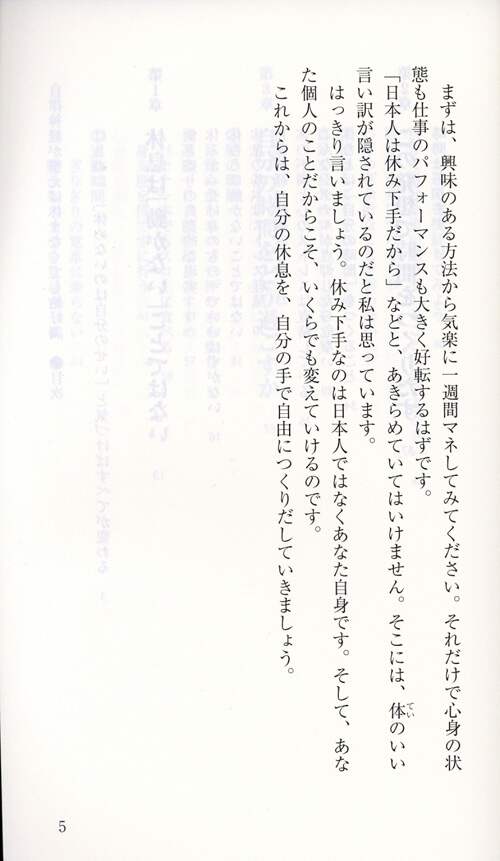 まずは、興味のある方法から気楽に一週間マネしてみてください。それだけで心身の状
態も仕事のパフォーマンスも大きく好転するはずです。
「日本人は休み下手だから」などと、あきらめていてはいけません。そこには、体のいい
てい
言い訳が隠されているのだと私は思っています。
はっきり言いましょう。休み下手なのは日本人ではなくあなた自身です。そして、あな
た個人のことだからこそ、いくらでも変えていけるのです。
これからは、自分の休息を、自分の手で自由につくりだしていきましょう。
5